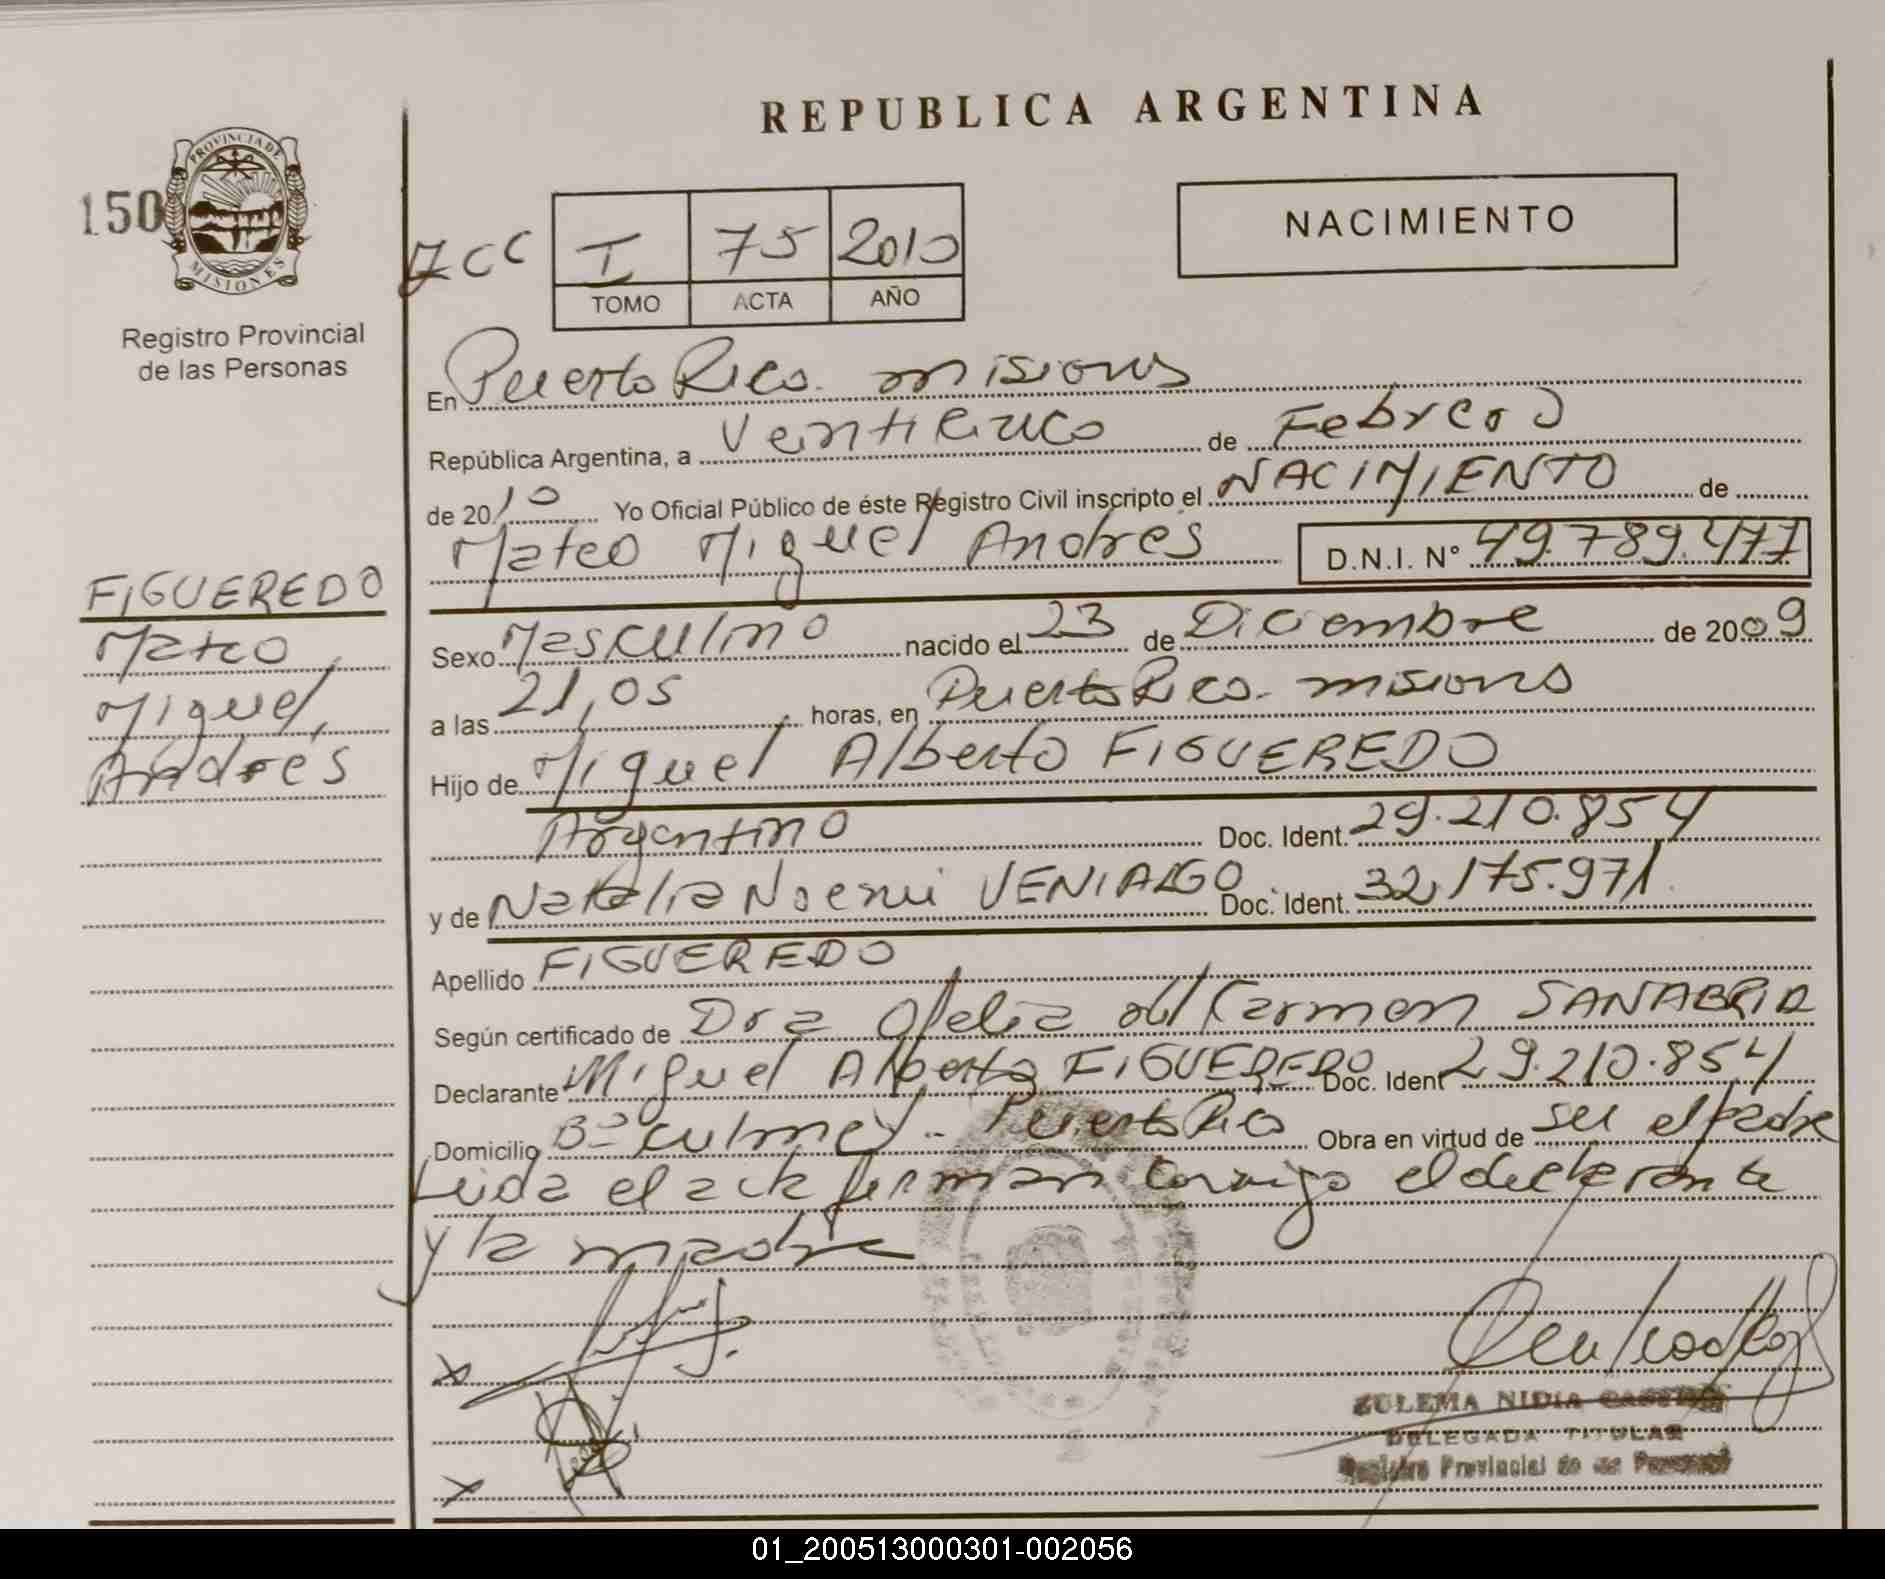 REPUBLICA ARGENTINA
150
PROVINCIA DE
MISIONES
Registro Provincial
de las Personas
I 75 2010
TOMO ACTA AÑO
NACIMIENTO
En Puerto Rico. misiones
República Argentina, a Veinticinco de Febrero
de 2010 Yo Oficial Público de éste Registro Civil inscripto el NACIMIENTO de
Mateo Miguel Andres D.N.I. Nº 49.789.477
FIGUEREDO
Mateo
Miguel,
Andrés
Sexo Masculino nacido el 23 de Diciembre de 2009
a las 21,05 horas, en Puerto Rico. misiones
Hijo de Miguel Alberto FIGUEREDO
Argentino Doc. Ident. 29.210.854
y de Natalia Noemi VENIALGO Doc. Ident. 32.175.971
Apellido FIGUEREDO
Según certificado de Dra Ofelia del Carmen SANABRIA
Declarante Miguel Alberto FIGUEREDO Doc. Ident 29.210.854
Domicilio Bº Culmey - Puerto Rico Obra en virtud de ser el padre
Leida el acta firman conmigo el declarante
y la madre
ZULEMA NIDIA
DELEGADA TITULAR
Registro Provincial de las Personas
01_200513000301-002056